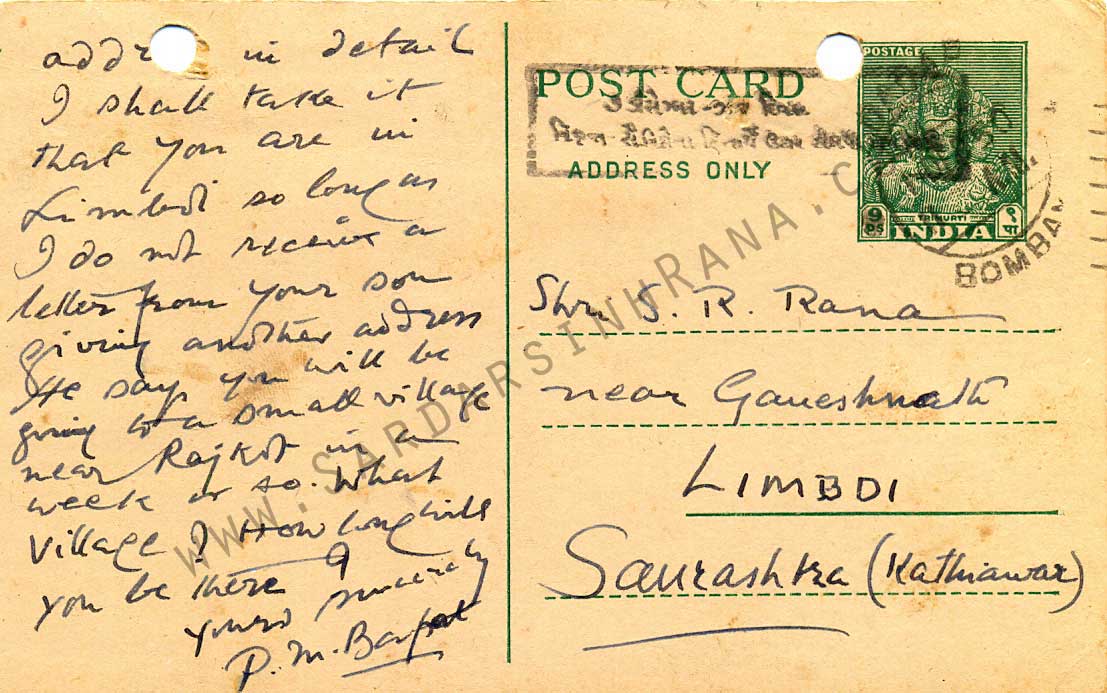 in detail
I shall take it
that you are in
Limbdi so long as
I do not receive a
letter from your son
giving another address
He says you will be
going to a small village
near Rajkot in a
week or so. What
village? How long will
you be there
yours sincerely
P. M.
POST CARD
ADDRESS ONLY
POSTAGE
9 PS
TRIMURTI
INDIA
९ पा
BOMBAY
Shri S. R. Rana
near Ganeshnath
LIMBDI
Saurashtra (Kathiawar)
WWW.SARDARSINHRANA.C